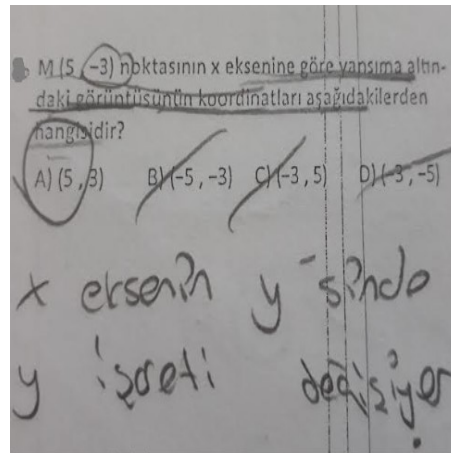 M (5, -3) noktasının x eksenine göre yansıma altın-
daki görüntüsünün koordinatları aşağıdakilerden
hangisidir?
A) (5 , 3) B) (-5 , -3) C) (-3 , 5) D) (-3 , -5)
x eksenin y sinde
y işareti değişiyer